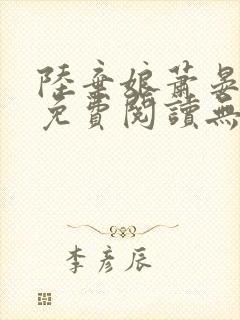 陸棄娘蕭晏
免費閱讀無
李彥辰